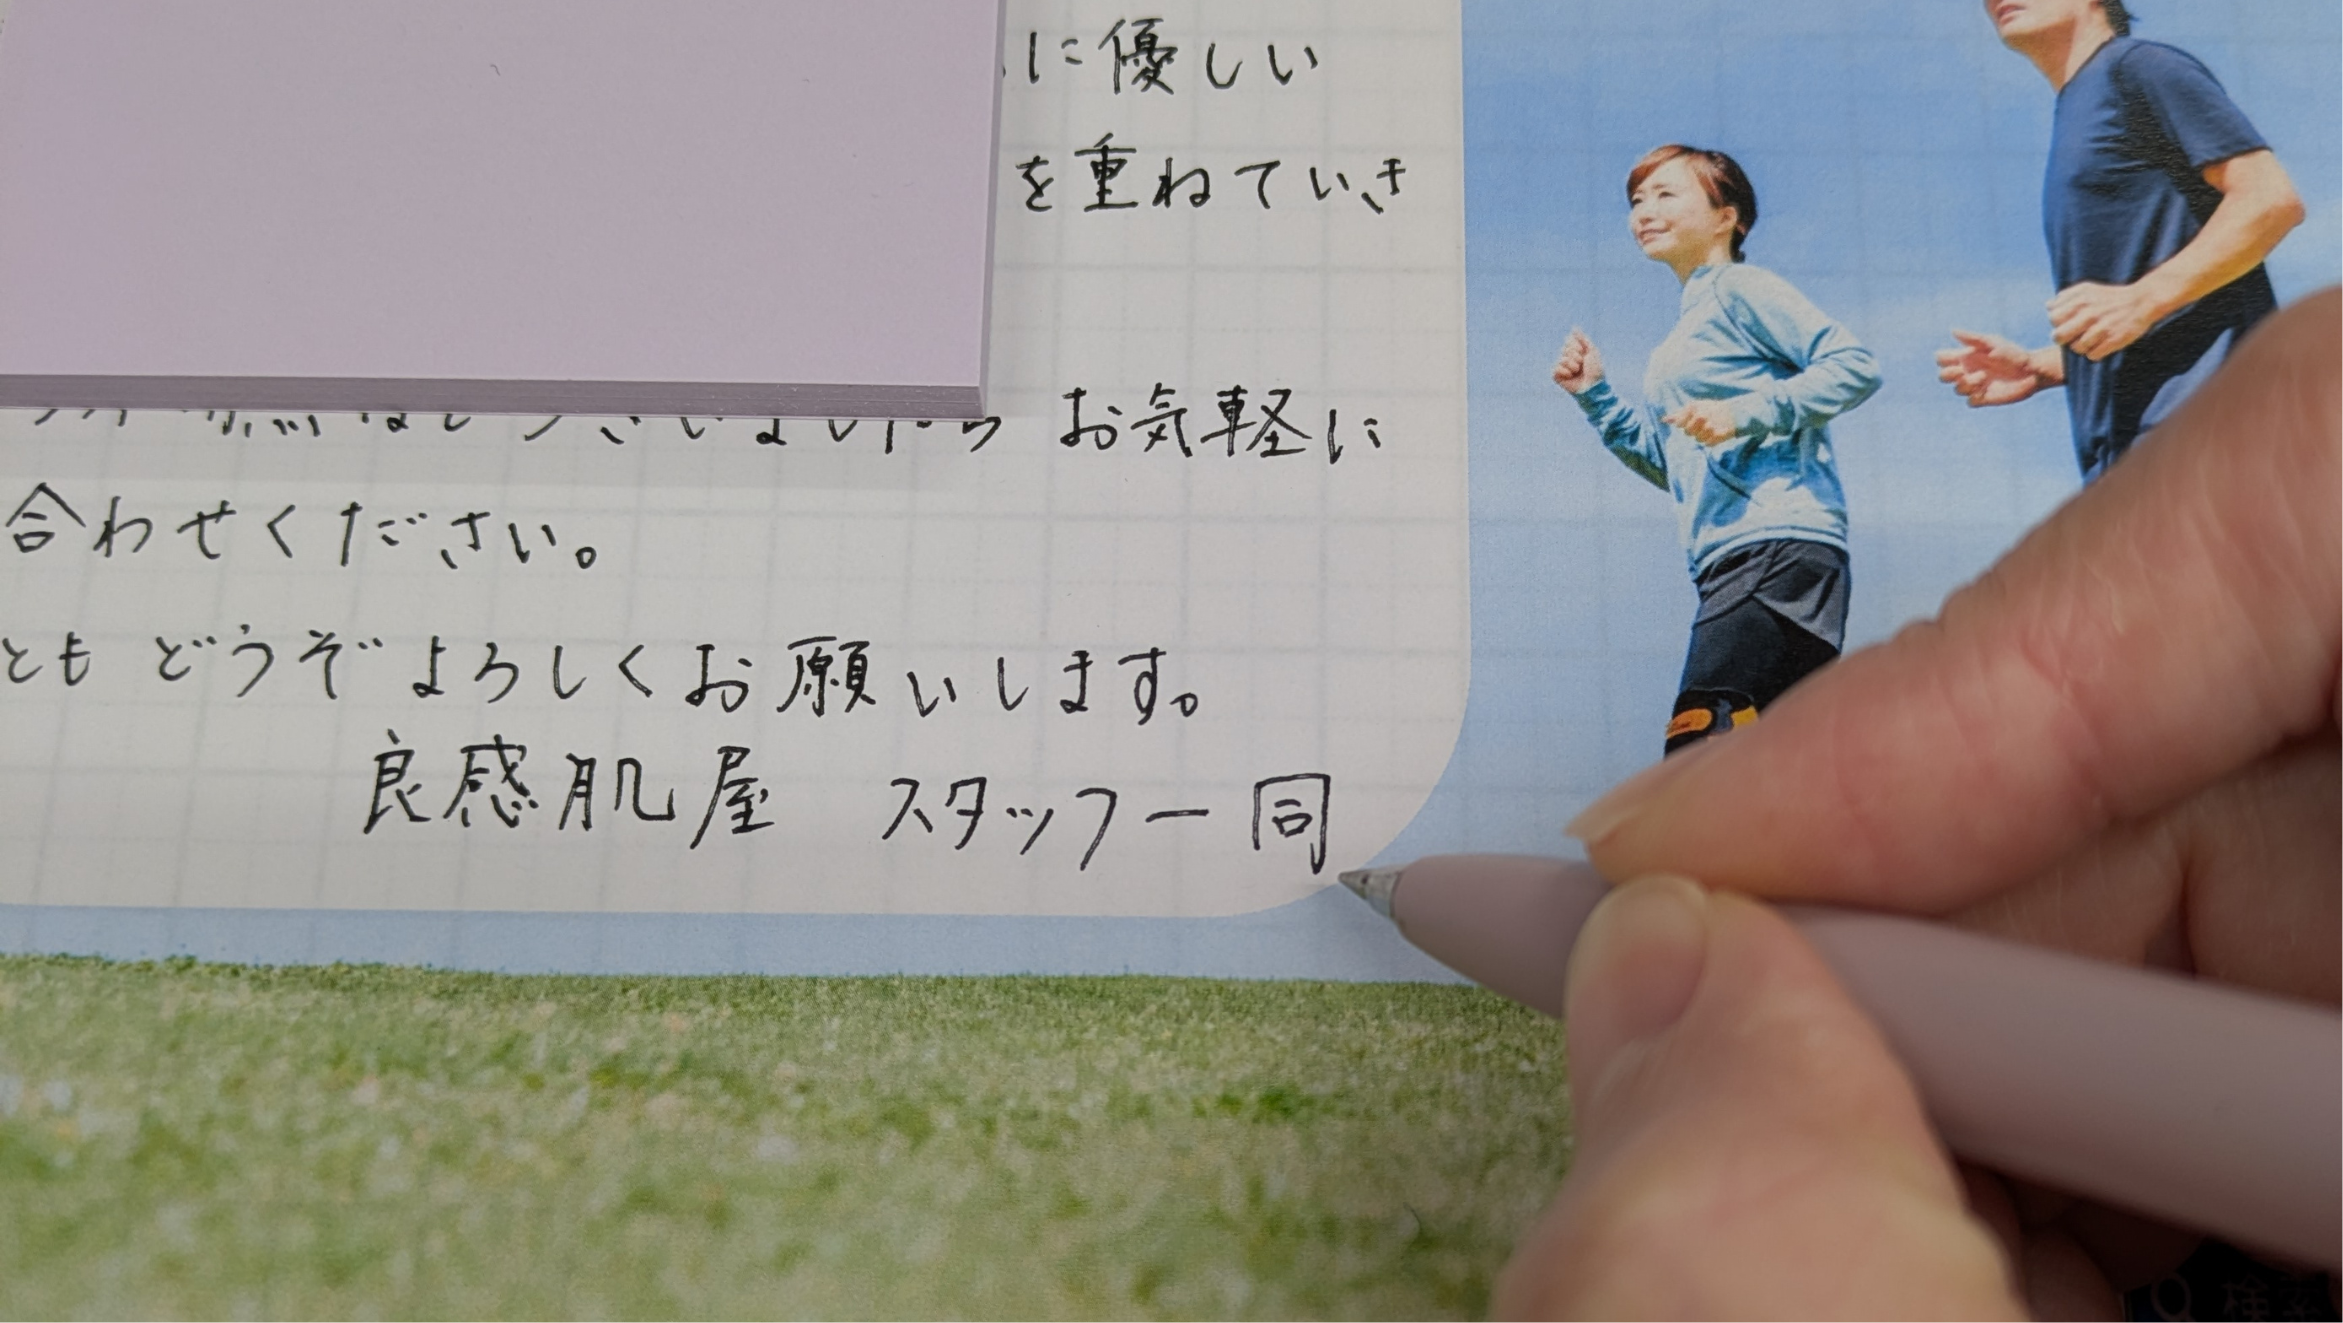 に優しい
を重ねていき
お気軽に
合わせください。
とも どうぞよろしくお願いします。
良感肌屋 スタッフ一同
検索